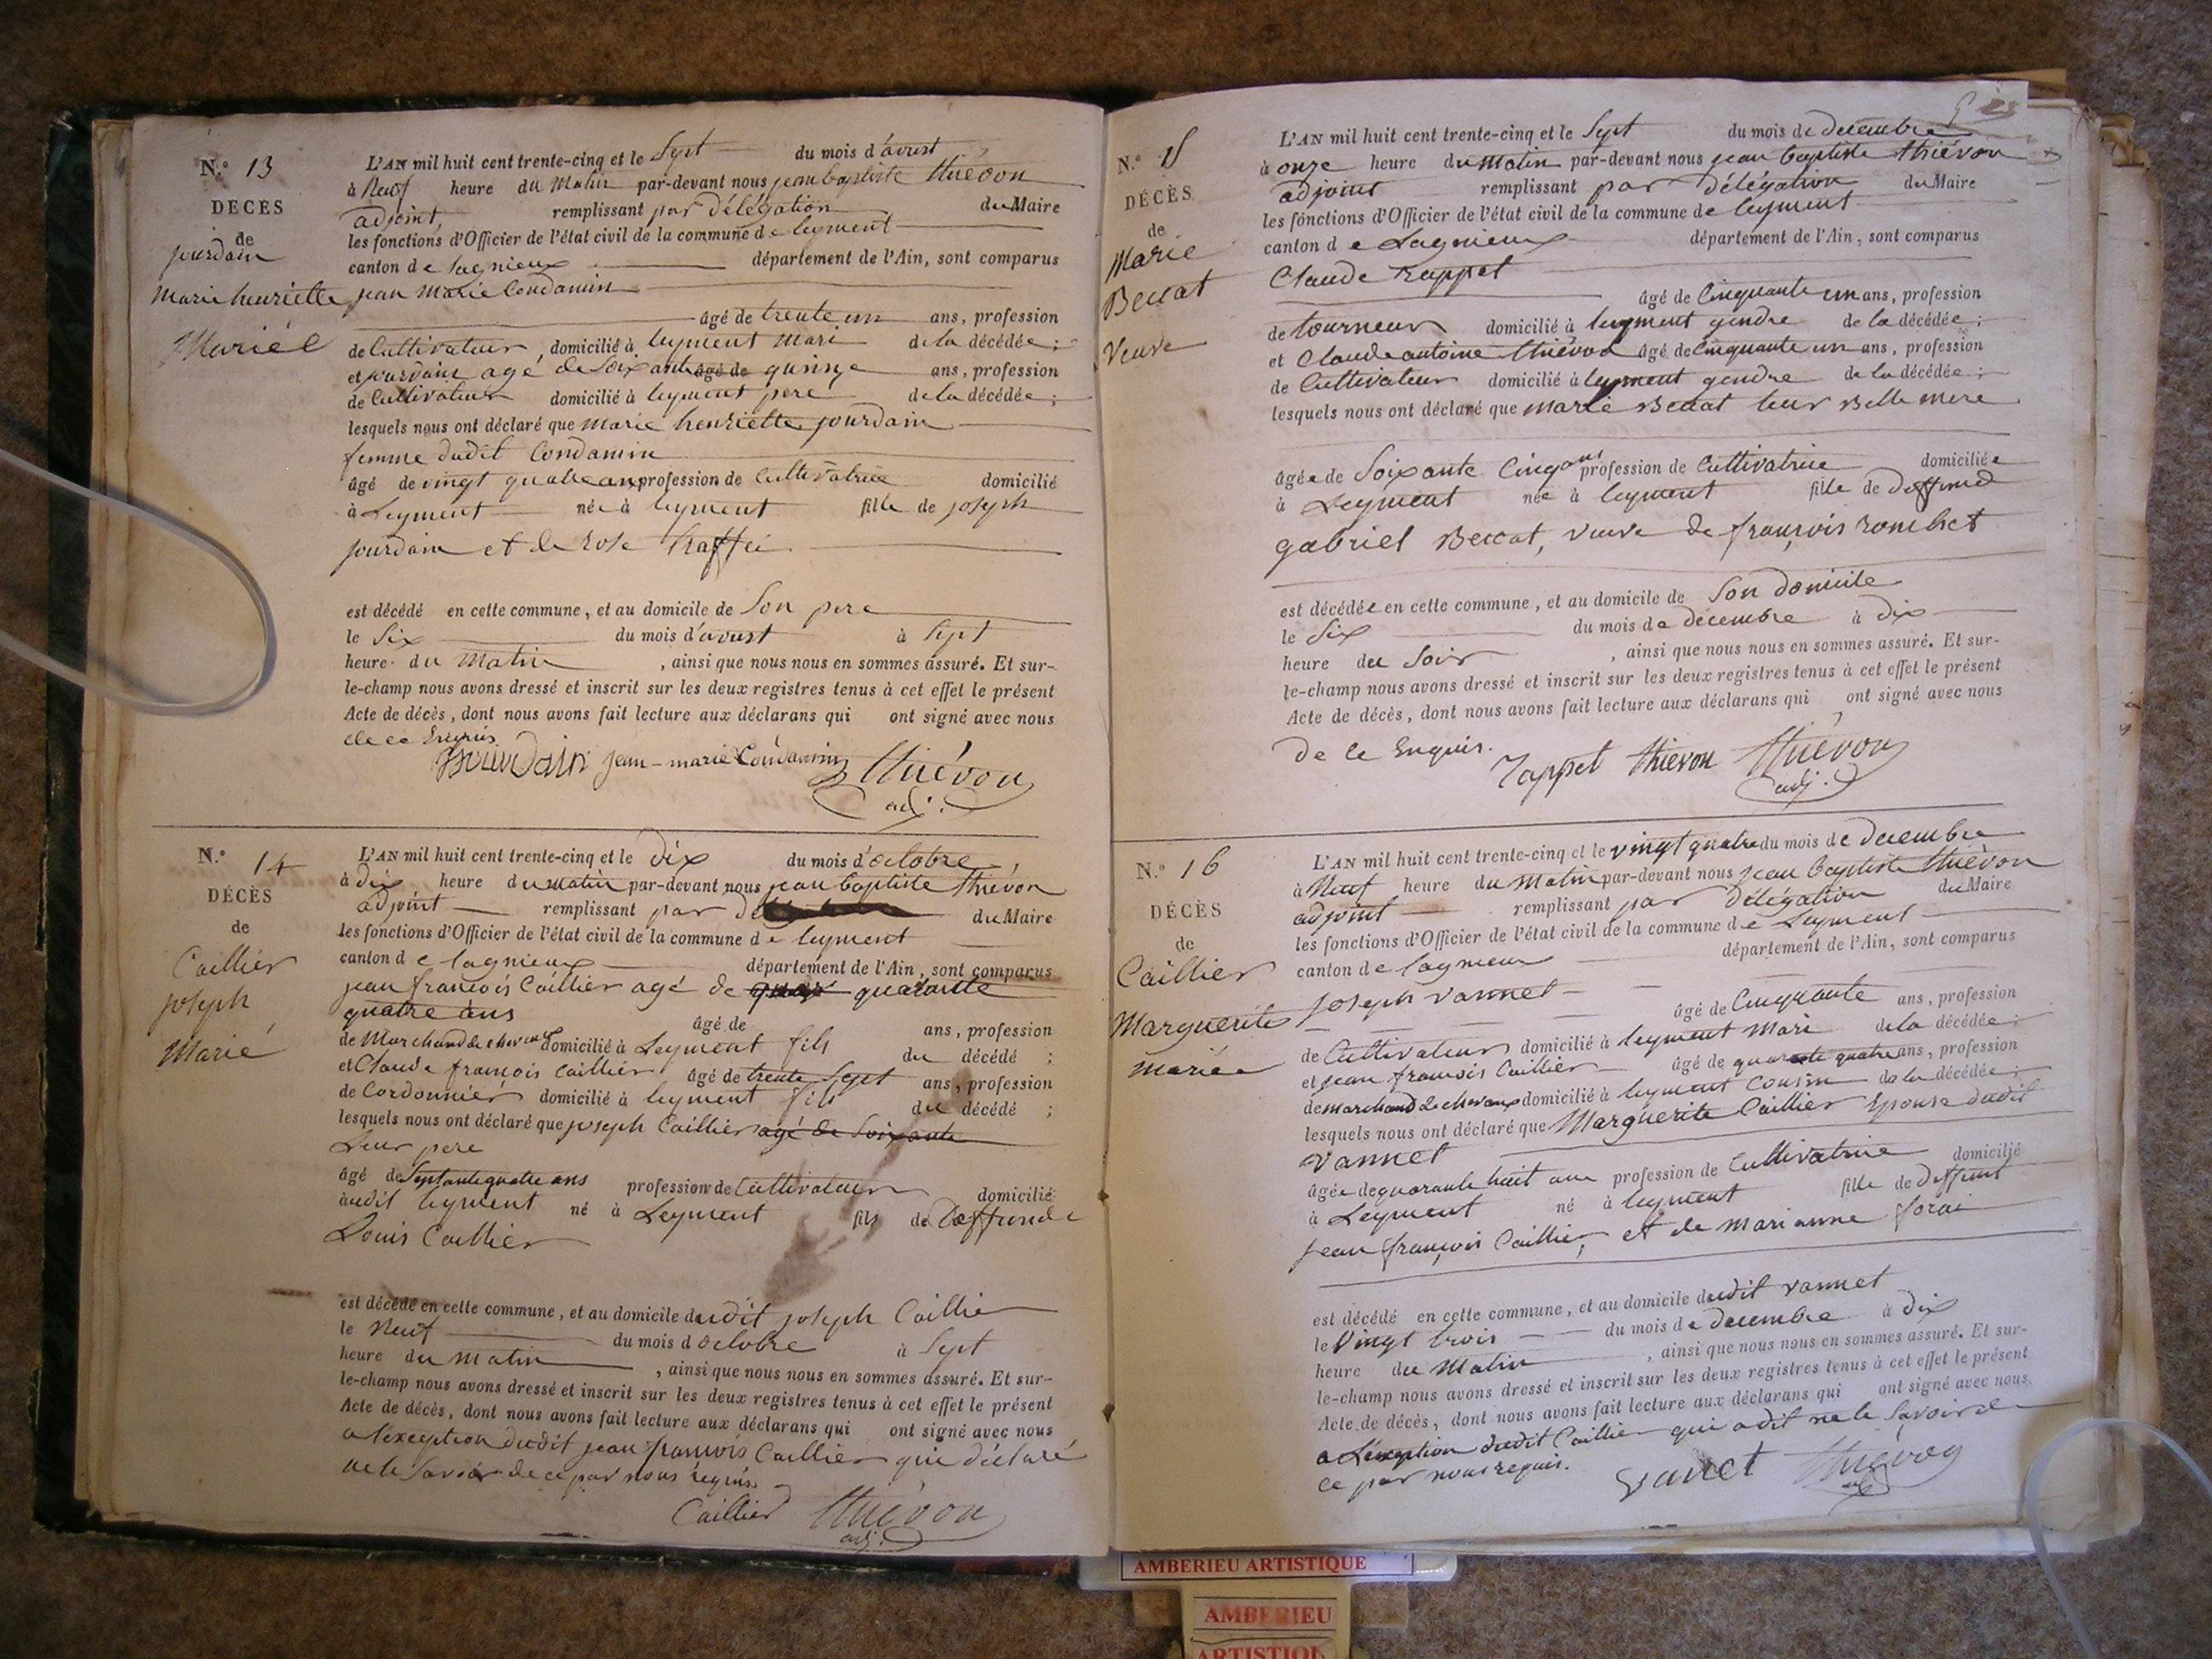 N.° 13
DÉCÈS
de
jourdain
marie henriette
Mariée
L'AN mil huit cent trente-cinq et le Sept du mois d'avust
à Neuf heure du Matin par-devant nous jean baptiste thiévon
adjoint remplissant par délégation du Maire
les fonctions d'Officier de l'état civil de la commune de leyment
canton de lagnieux département de l'Ain, sont comparus
jean Marie Condamin
âgé de trente un ans, profession
de Cultivateur, domicilié à leyment mari de la décédée ;
et jourdain agé de Soixante âgé de quinze ans, profession
de Cultivateur domicilié à leyment pere de la décédée ;
lesquels nous ont déclaré que marie henriette jourdain
femme dudit Condamin
âgé de vingt quatre ans profession de Cultivatrice domicilié
à Leyment née à leyment fille de joseph
jourdain et de rose
est décédé en cette commune, et au domicile de Son pere
le Six du mois d'avust à Sept
heure du Matin, ainsi que nous nous en sommes assuré. Et sur-
le-champ nous avons dressé et inscrit sur les deux registres tenus à cet effet le présent
Acte de décès, dont nous avons fait lecture aux déclarans qui ont signé avec nous
de ce Enquis
jourdain jean-marie Condamin thiévon
adj.
N.° 14
DÉCÈS
de
Caillier
joseph
Marié
L'AN mil huit cent trente-cinq et le dix du mois d'octobre
à dix heure du matin par-devant nous jean baptiste thiévon
adjoint remplissant par du Maire
les fonctions d'Officier de l'état civil de la commune de leyment
canton de lagnieux département de l'Ain, sont comparus
jean francois Caillier agé de quarante
quatre ans âgé de ans, profession
de Marchand de chevaux domicilié à Leyment fils du décédé ;
et Claude francois Caillier âgé de trente Sept ans, profession
de Cordonnier domicilié à leyment fils du décédé ;
lesquels nous ont déclaré que joseph Caillier agé de Soixante
Leur pere
âgé de Septante quatre ans profession de Cultivateur domicilié
audit leyment né à Leyment fils de deffunde
Louis Caillier
est décédé en cette commune, et au domicile dudit joseph Caillier
le Neuf du mois d octobre à Sept
heure du matin, ainsi que nous nous en sommes assuré. Et sur-
le-champ nous avons dressé et inscrit sur les deux registres tenus à cet effet le présent
Acte de décès, dont nous avons fait lecture aux déclarans qui ont signé avec nous
a lexception dudit jean francois Caillier qui déclaré
ne le Savoir de ce par nous requis
Caillier thiévon
adj.
N.° 15
DÉCÈS
de
Marie
Beccat
Veuve
L'AN mil huit cent trente-cinq et le Sept du mois de decembre
à onze heure du Matin par-devant nous jean baptiste thiévon
adjoint remplissant par délégation du Maire
les fonctions d'Officier de l'état civil de la commune de leyment
canton de Lagnieux département de l'Ain, sont comparus
Claude rappet
âgé de Cinquante un ans, profession
de tourneur domicilié à leyment gendre de la décédée ;
et Claude antoine thiévon âgé de Cinquante un ans, profession
de Cultivateur domicilié à leyment gendre de la décédée ;
lesquels nous ont déclaré que marie Beccat leur Belle mere
âgée de Soixante Cinq ans profession de Cultivatrice domiciliée
à Leyment née à leyment fille de deffund
gabriel Beccat, veuve de françois rombet
est décédée en cette commune, et au domicile de Son domicile
le Six du mois de decembre à dix
heure du Soir, ainsi que nous nous en sommes assuré. Et sur-
le-champ nous avons dressé et inscrit sur les deux registres tenus à cet effet le présent
Acte de décès, dont nous avons fait lecture aux déclarans qui ont signé avec nous
de ce Enquis.
rappet thievon thiévon
adj.
N.° 16
DÉCÈS
de
Caillier
Marguerite
mariée
L'AN mil huit cent trente-cinq et le vingt quatre du mois de decembre
à Neuf heure du Matin par-devant nous jean baptiste thiévon
adjoint remplissant par délégation du Maire
les fonctions d'Officier de l'état civil de la commune de Leyment
canton de lagnieux département de l'Ain, sont comparus
joseph vannet
âgé de Cinquante ans, profession
de Cultivateur domicilié à leyment Mari de la décédée ;
et jean francois Caillier âgé de quarante quatre ans, profession
de marchand de chevaux domicilié à leyment Cousin de la décédée ;
lesquels nous ont déclaré que Marguerite Caillier Epouse dudit
vannet
âgée de quarante huit ans profession de Cultivatrice domicilié
à Leyment né à leyment fille de deffunt
jean françois Caillier, et de marianne
est décédé en cette commune, et au domicile dudit vannet
le Vingt trois du mois de decembre à dix
heure du Matin, ainsi que nous nous en sommes assuré. Et sur-
le-champ nous avons dressé et inscrit sur les deux registres tenus à cet effet le présent
Acte de décès, dont nous avons fait lecture aux déclarans qui ont signé avec nous
a Léxception dudit Caillier qui a dit ne le Savoir de
ce par nous requis.
vanet thiévon
adj
AMBERIEU ARTISTIQUE
AMBERIEU
ARTISTIQUE